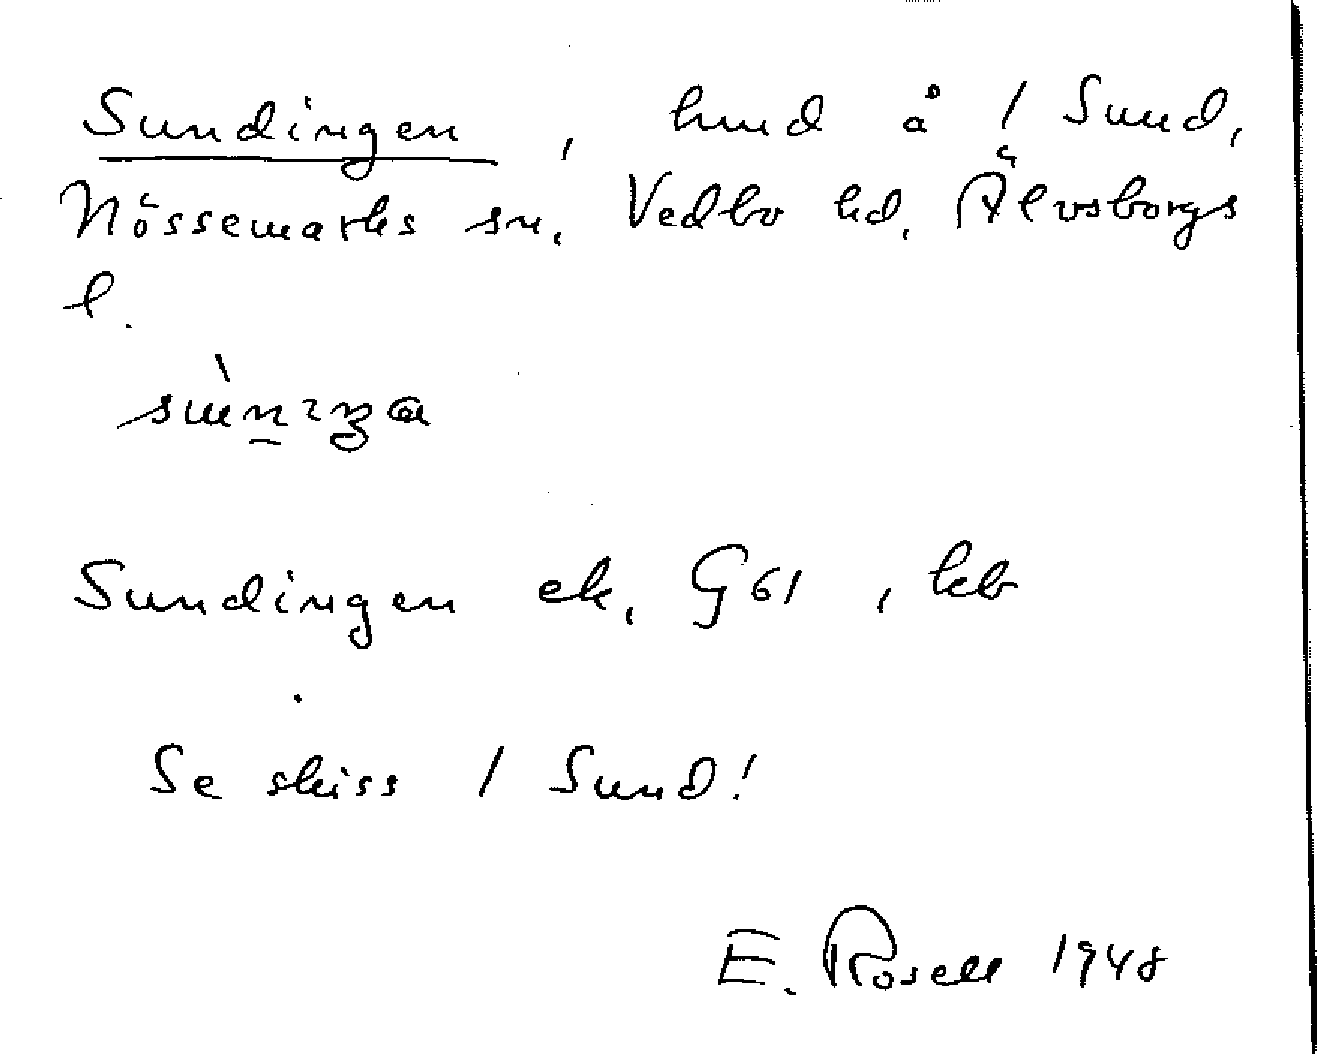 Sundingen, hmd å 1 Sund,
Nössemarks sn, Vedbo hd, Älvsborgs
l.
Sundingen ek, G61, kb
Se skiss 1 Sund!
E. Rosell 1948